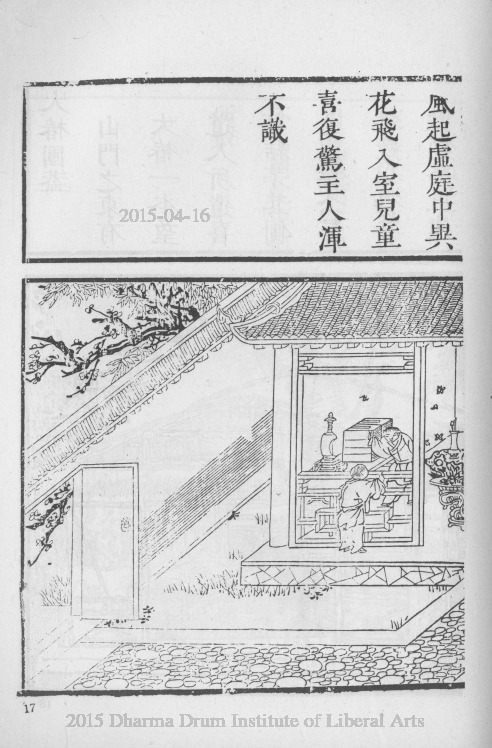 風起虛庭中異
花飛入室兒童
喜復驚主人渾
不識
2015-04-16
17
2015 Dharma Drum Institute of Liberal Arts